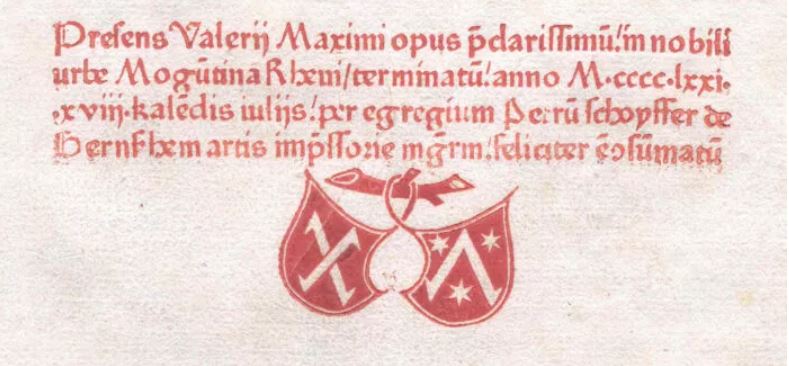 Preſens Valerij Maximi opus p̄clariſſimū! in nobili
urbe Mogūtina Rheni/terminatū! anno M·cccc·lxxi·
·xviij·kalēdis iulijs! per egregium Petrū ſchoyffer de
Gernſhem artis imp̄ſſorie mg̅rm! feliciter ē ↄſūmatū